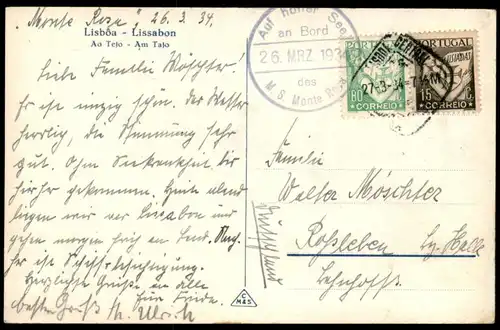 "Monte Rosa", 26.3.34.
Lisbôa - Lissabon
Ao Tejo - Am Tajo
Liebe Familie Möschter!
Hier ist einzig schön. Das Wetter
herrlig, die Stimmung sehr
gut. Ohne Seekrankheit bis
hierher gekommen. Heute abend
liegen wir vor Lissabon und
gehen morgen früh an Land.
hier ist Schiffsbesichtigung.
Herzliche Grüße an alle
besten Gruß
Auf hoher See
an Bord
26. MRZ. 1934
des
M. S. Monte Rosa
PORTUGAL
80 C. CORREIO
LISBOA CENTRAL
27-3-34
PORTUGAL
LUSIADAS
15 C. CORREIO
Familie
Walter Möschter
Roßleben Bz. Halle
Bahnhofstr.
Deutschland
C
M&S